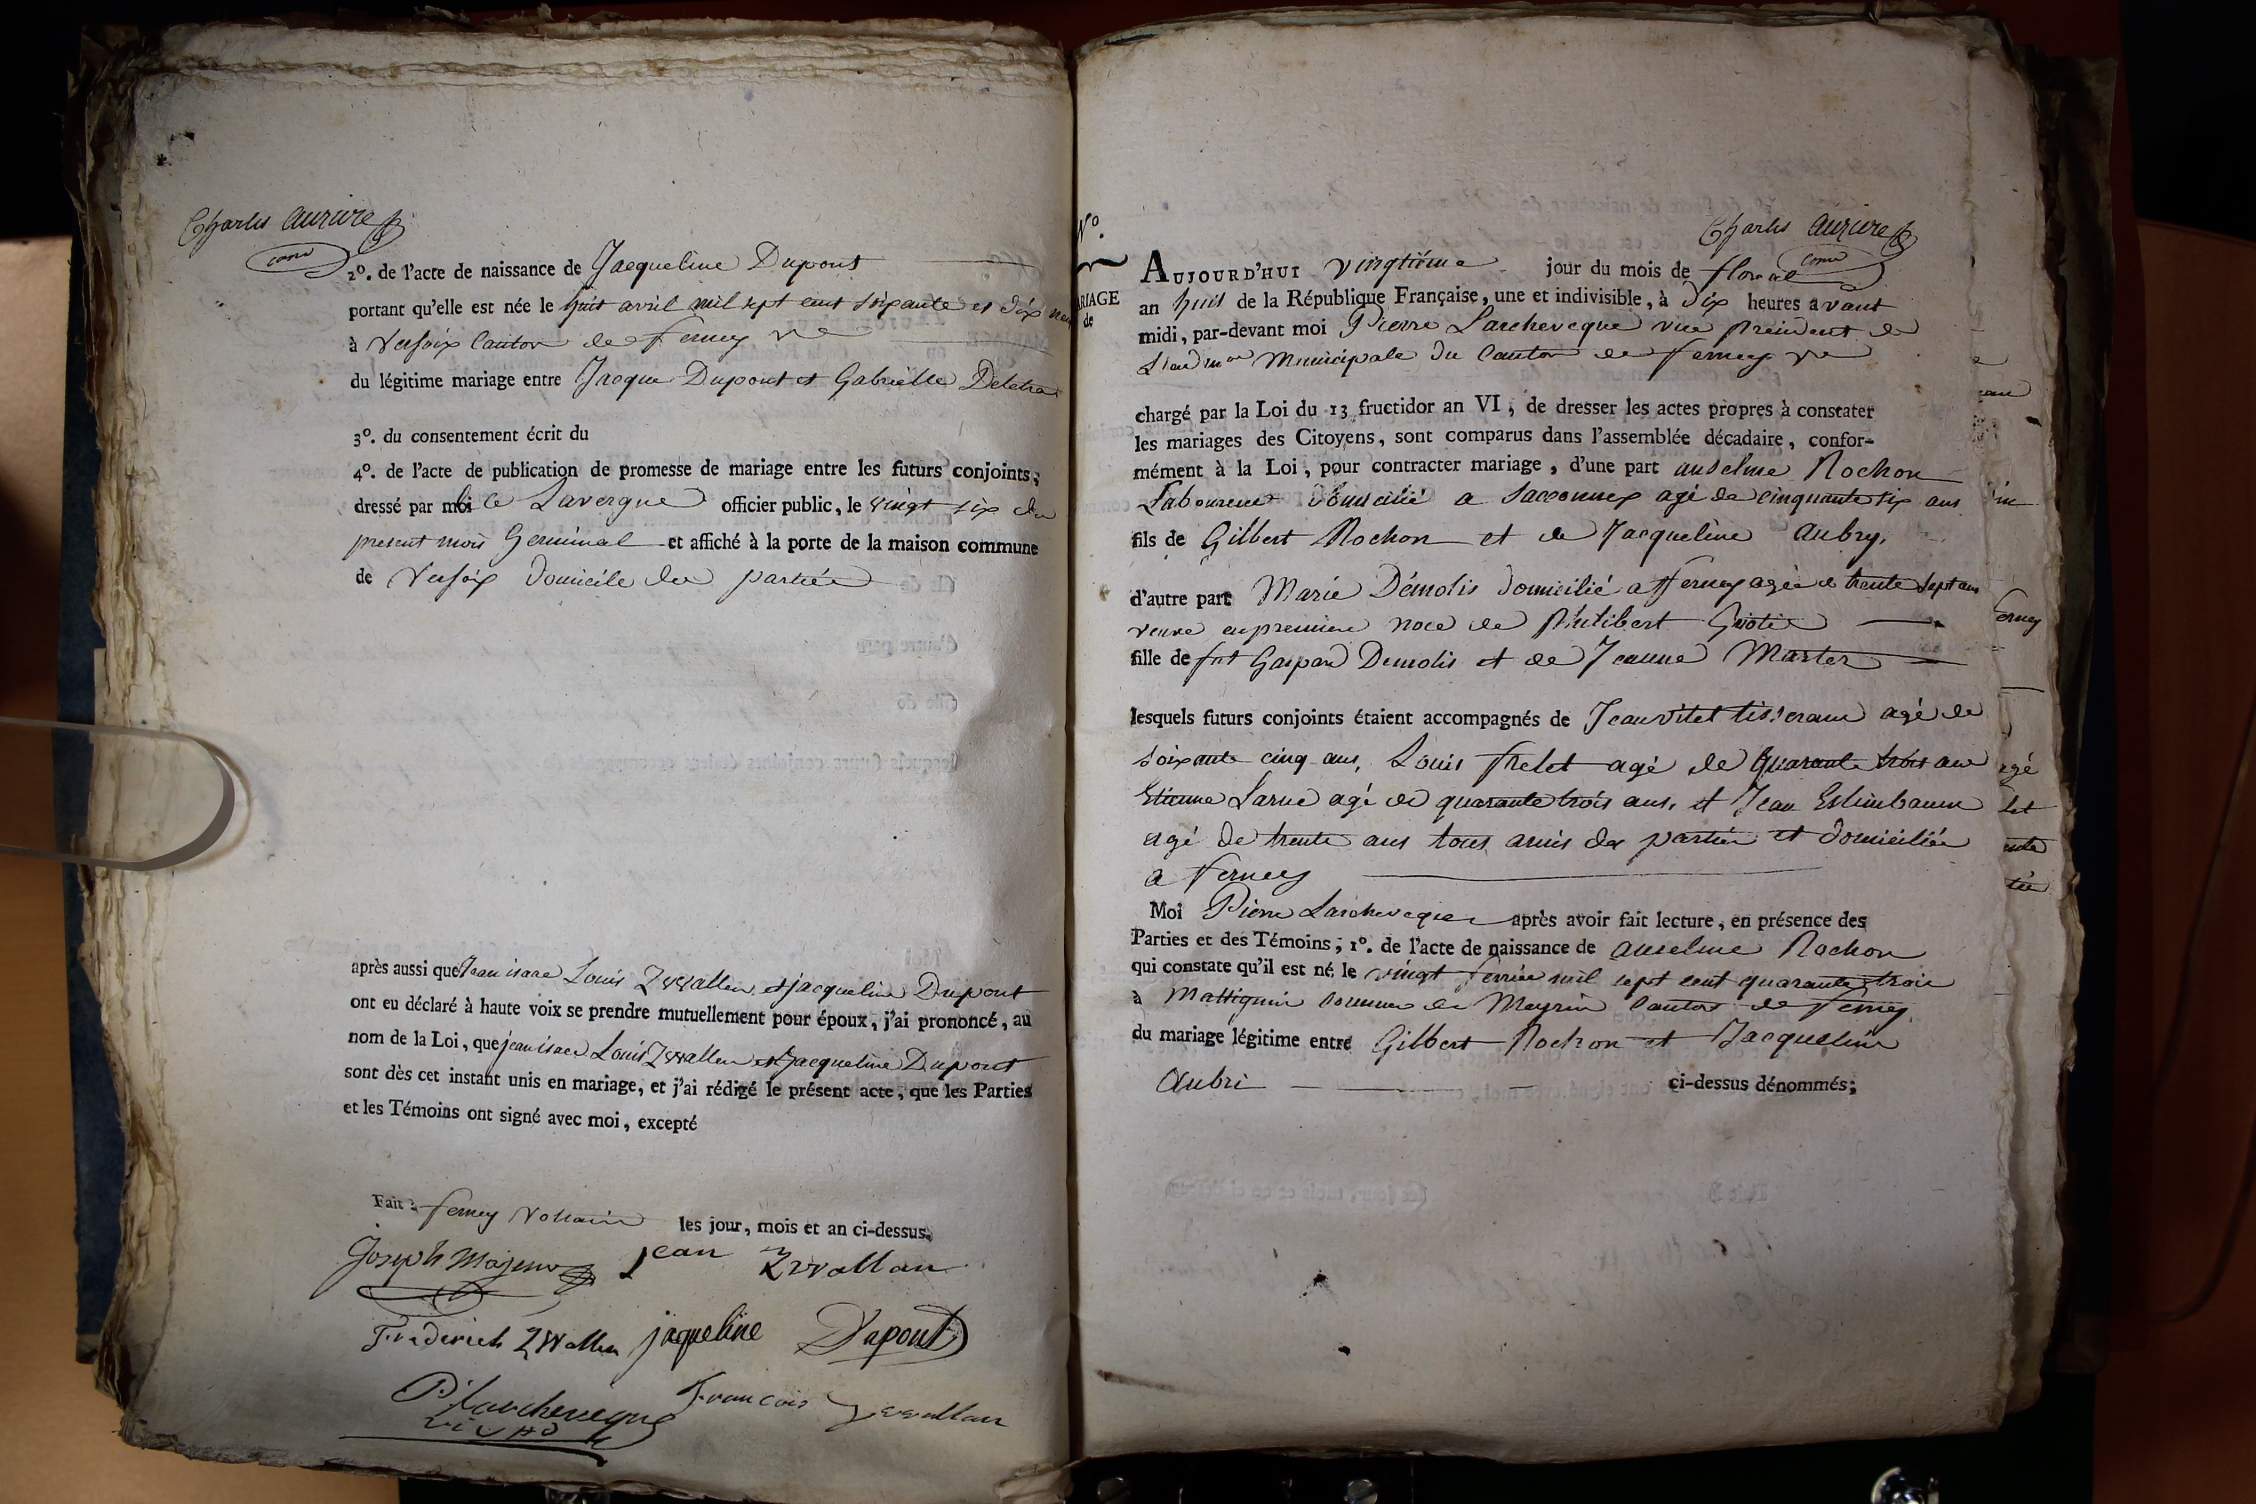 Charles auzière
2º. de l'acte de naissance de Jacqueline Dupont
portant qu'elle est née le huit avril mil sept cent soixante et dix neu
à Versoix Canton de Ferney Vre
du légitime mariage entre Jacque Dupont et Gabrielle Deletra
3º. du consentement écrit du
4º. de l'acte de publication de promesse de mariage entre les futurs conjoints,
dressé par moi le Lavergne officier public, le vingt six du
present mois Germinal et affiché à la porte de la maison commune
de Versoix domicile des parties
après aussi que Jean isaac Louis Zwallen et jacqueline Dupont
ont eu déclaré à haute voix se prendre mutuellement pour époux, j'ai prononcé, au
nom de la Loi, que jean isaac Louis Zwallen et Jacqueline Dupont
sont dès cet instant unis en mariage, et j'ai rédigé le présent acte, que les Parties
et les Témoins ont signé avec moi, excepté
Fait à ferney Voltaire les jour, mois et an ci-dessus.
Joseph Jean Zwallan
Frederich Zwallen jaqueline Dupont
P. Larcheveque Francois Zwallan
Nº.
Charles auzière
ARIAGE
de
AUJOURD'HUI vingtième jour du mois de floreal
an huit de la République Française, une et indivisible, à dix heures avant
midi, par-devant moi Pierre Larcheveque vice president de
L'admon Municipale du Canton de Ferney Vre
chargé par la Loi du 13 fructidor an VI, de dresser les actes propres à constater
les mariages des Citoyens, sont comparus dans l'assemblée décadaire, confor-
mément à la Loi, pour contracter mariage, d'une part anselme Rochon
Laboureur domicilié a Saconnex agé de cinquante six ans
fils de Gilbert Rochon et de Jacqueline Aubry.
d'autre part Marie Démolis domicilié a Ferney agée de trente sept ans
veuve en premiere noce de Philibert
fille de fut Gaspard Demolis et de Jeanne Marter
lesquels futurs conjoints étaient accompagnés de Jean vitet tisserand agé de
soixante cinq ans, Louis frelet agé de quarante trois ans
Etienne Larue agé de quarante trois ans, et Jean Eslimbaum
agé de trente ans tous amis des parties et domiciliés
a Ferney
Moi Pierre Larcheveque après avoir fait lecture, en présence des
Parties et des Témoins; 1º. de l'acte de naissance de anselme Rochon
qui constate qu'il est né le vingt fevrier mil sept cent quarante trois
à Mattignin Commune de Meyrin Canton de Ferney
du mariage légitime entre Gilbert Rochon et Jacqueline
Aubri ci-dessus dénommés;